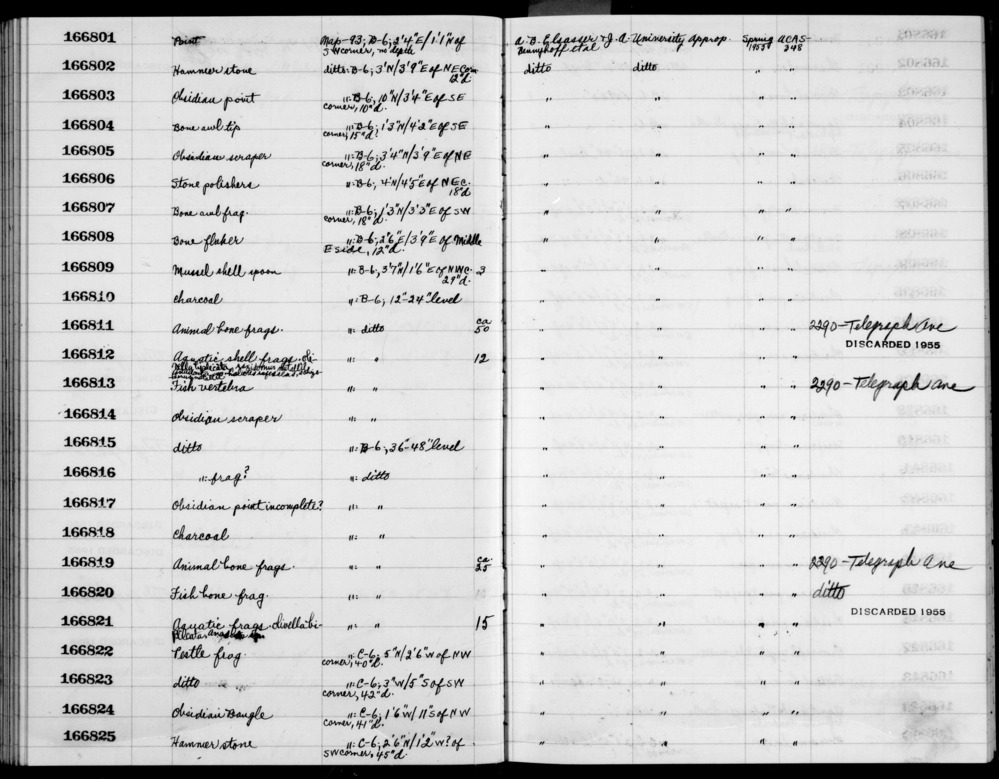 166801 Point Map-93; B-6; 2'4"E/1'1"N of A. B. Elsasser & J. A. University approp. Spring UCAS-
SW corner, no depth Bennyhoff et al 1955 248
166802 Hammer stone ditto: B-6; 3'N/3'9"E of NE Cor. ditto ditto " "
12"d.
166803 Obsidian point ": B-6; 10"N/3'4"E of SE " " " "
corner, 10"d.
166804 Bone awl tip ": B-6; 1'3"N/4'2"E of SE " " " "
corner, 15"d.
166805 Obsidian scraper ": B-6; 3'4"N/3'9"E of NE " " " "
corner, 18"d.
166806 Stone polishers ": B-6; 4'N/4'5"E of NE C. " " " "
18"d
166807 Bone awl frag. ": B-6; 1'3"N/3'3"E of SW " " " "
corner, 18"d.
166808 Bone flaker ": B-6; 2'6"E/3'9"E of Middle " " " "
E side, 12"d.
166809 Mussel shell spoon ": B-6; 3'7"N/1'6"E of NW C. 3 " " " "
29"d.
166810 Charcoal ": B-6; 12"-24" level " " " "
166811 Animal bone frags. ": ditto ca 50 " " " " 2290-Telegraph Ave
DISCARDED 1955
166812 Aquatic shell frags. ": " 12 " " " "
166813 Fish vertebra ": " " " " " 2290-Telegraph Ave
166814 Obsidian scraper ": " " " " "
166815 ditto ": B-6; 36"-48" level " " " "
166816 ": frag? ": ditto " " " "
166817 Obsidian point incomplete? ": " " " " "
166818 Charcoal ": " " " " "
166819 Animal bone frags. ": " ca. 25 " " " " 2290-Telegraph Ave
166820 Fish bone frag. ": " " " " " ditto
DISCARDED 1955
166821 Aquatic frags. ": " 15 " " " "
166822 Pestle frag. ": C-6; 5"N/2'6"W of NW " " " "
corner, 40"d.
166823 ditto ": C-6; 3"W/5"S of SW " " " "
corner, 42"d.
166824 Obsidian Bangle ": C-6; 1'6"W/11"S of NW " " " "
corner, 41"d.
166825 Hammer stone ": C-6; 2'6"N/1'2"W? of " " " "
SW corner, 45"d.